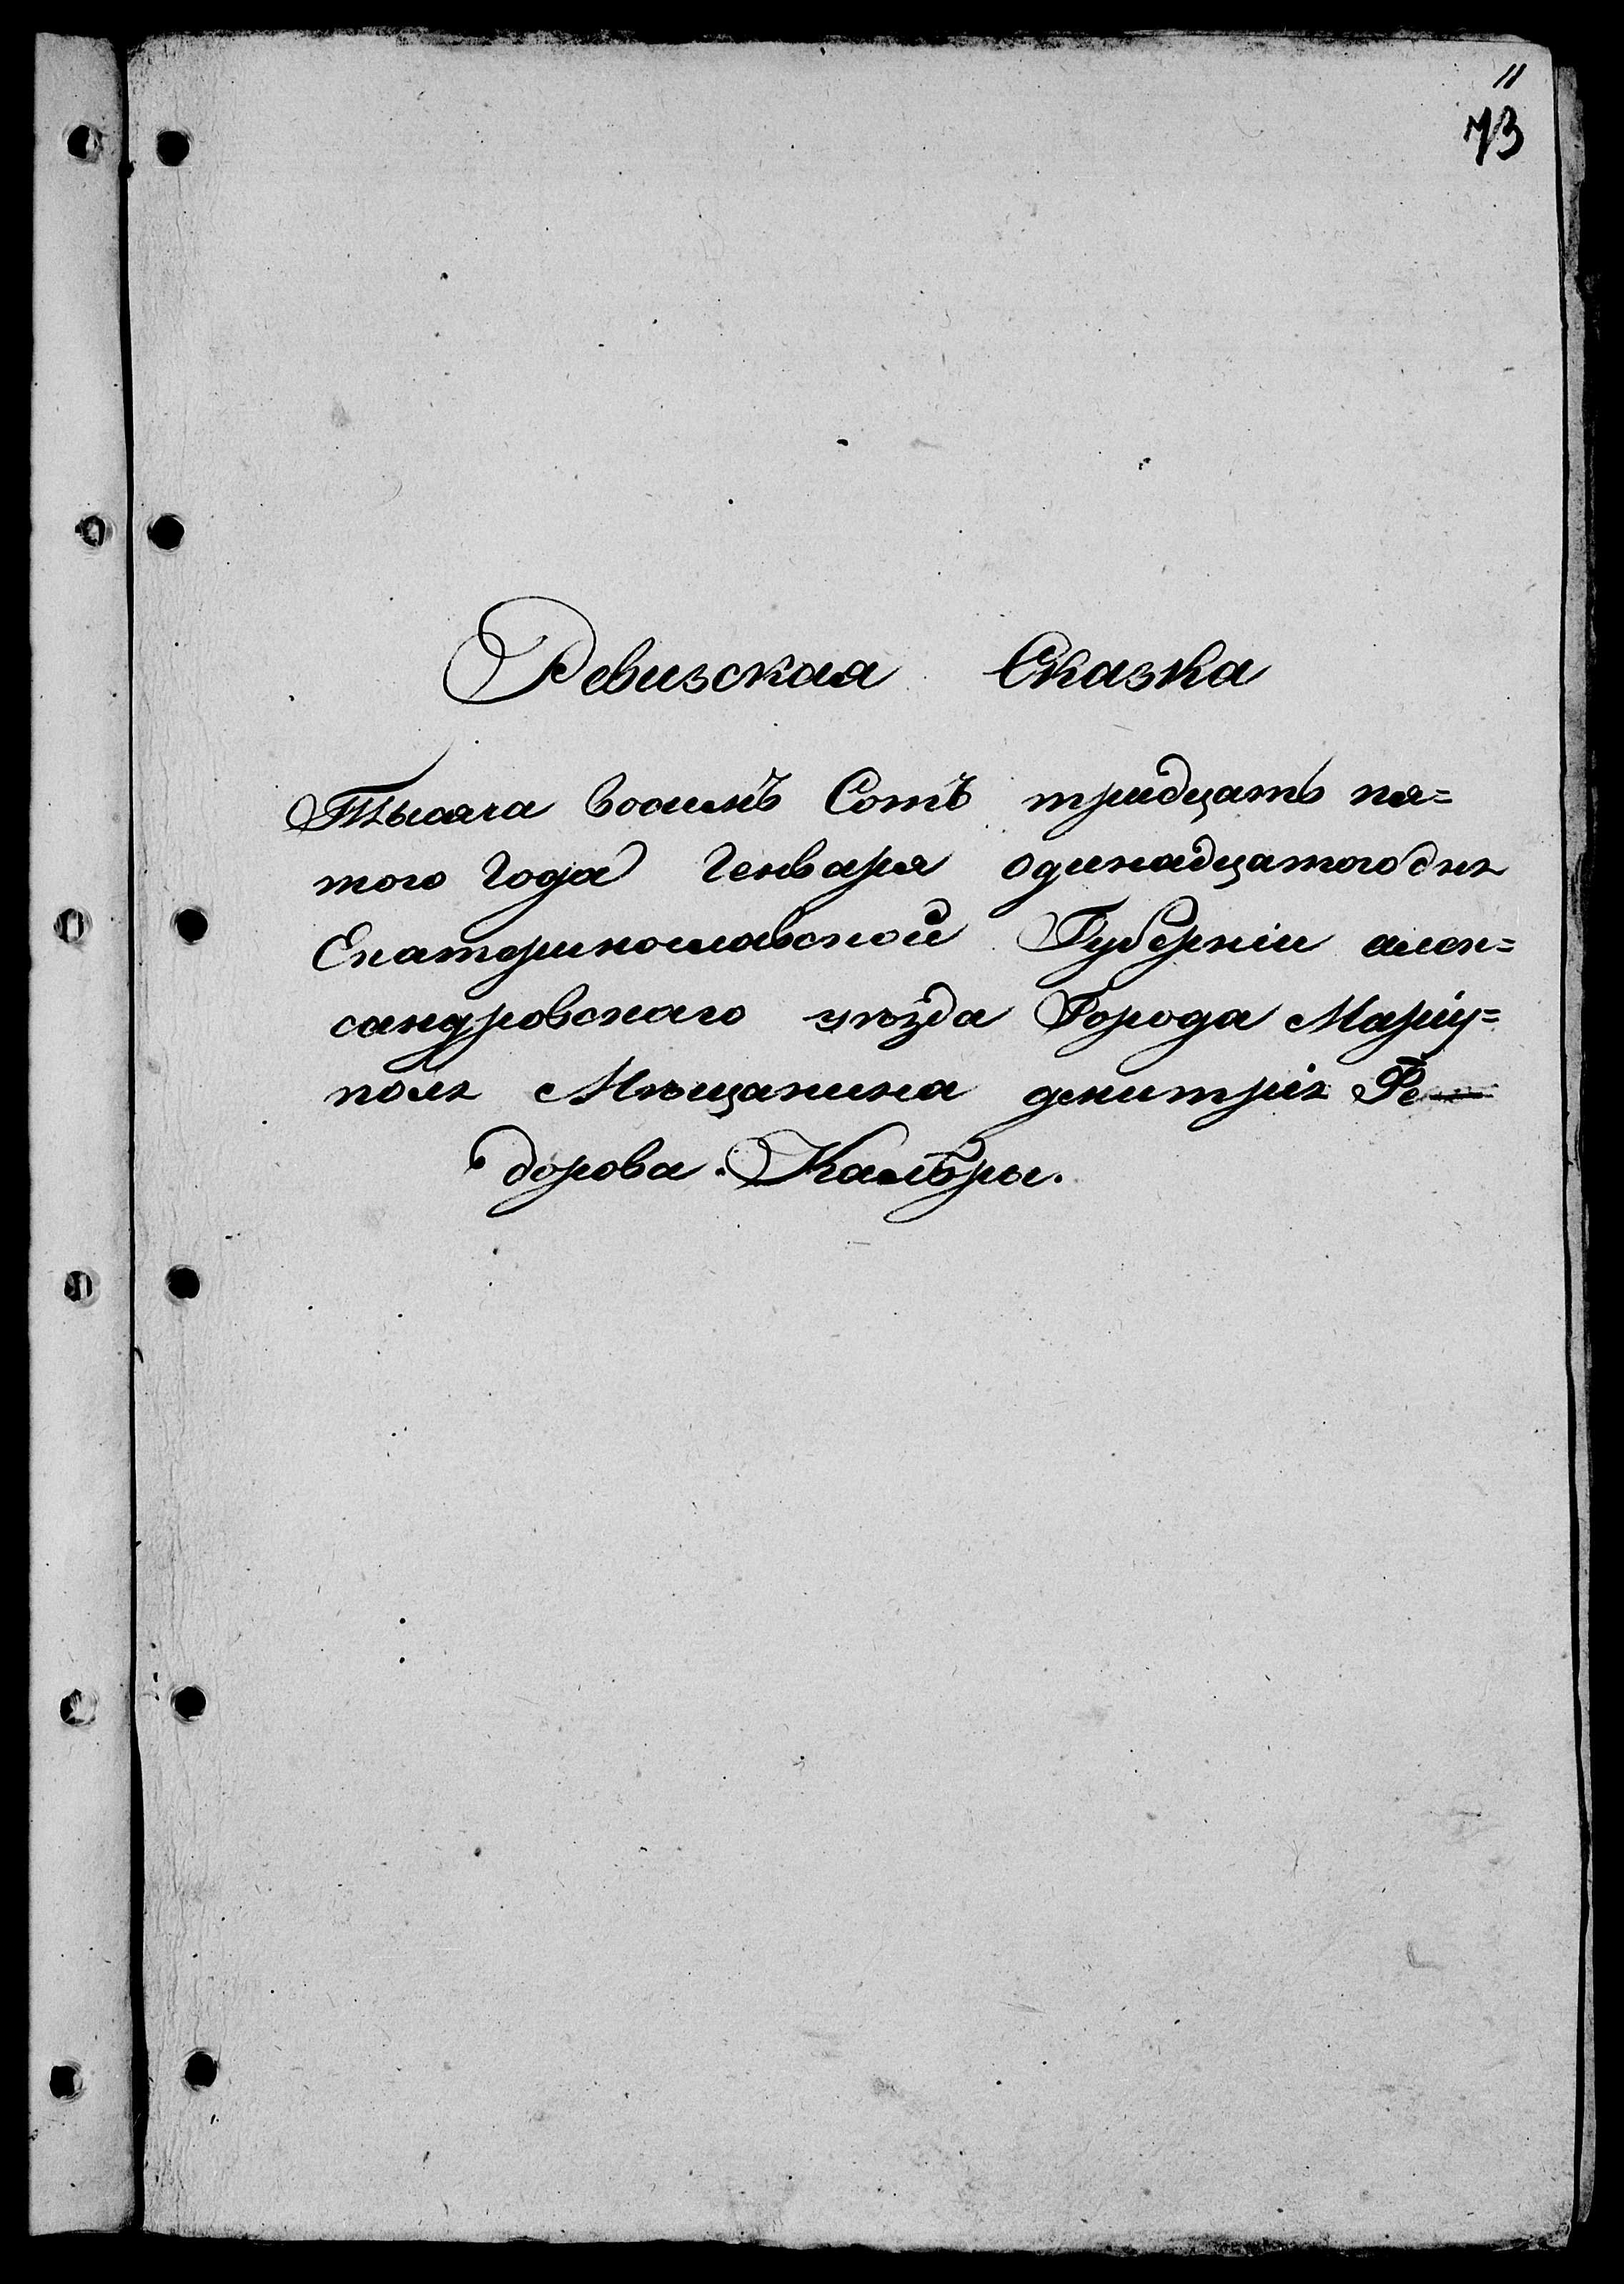 11
73
Ревизская Сказка
Тысяча восемъ Сотъ тридцать пя=
того Года Генваря одинадцатого дня
Екатеринославской Губерніи алек=
сандровскаго уѣзда Города Маріу=
поля Мѣщанина дмитрія Ѳе
дорова